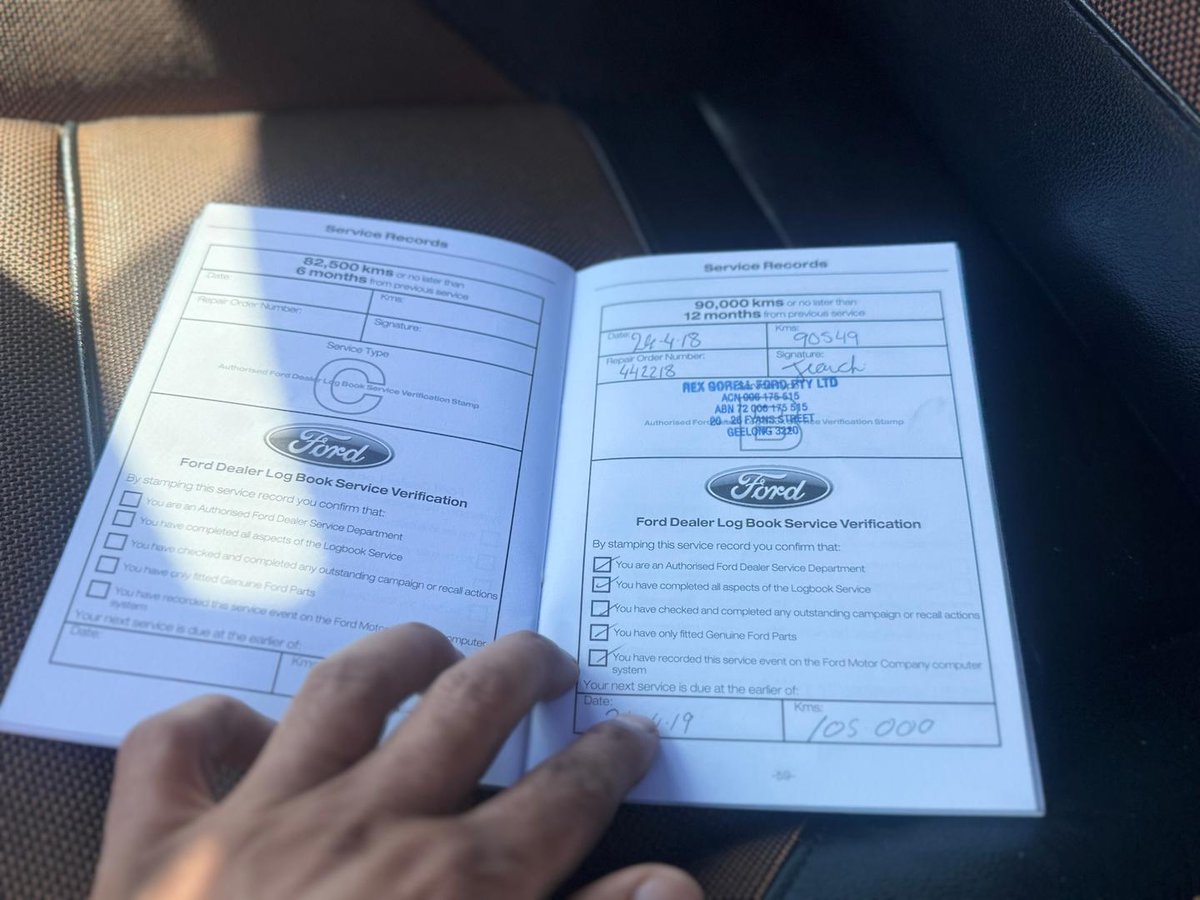 Service Records
82,500 kms or no later than
6 months from previous service
Date
Kms:
Repair Order Number:
Signature:
Service Type
C
Authorised Ford Dealer Log Book Service Verification Stamp
Ford
Ford Dealer Log Book Service Verification
By stamping this service record you confirm that:
You are an Authorised Ford Dealer Service Department
You have completed all aspects of the Logbook Service
You have checked and completed any outstanding campaign or recall actions
You have only fitted Genuine Ford Parts
You have recorded this service event on the Ford Motor computer
system
Your next service is due at the earlier of:
Date:
Kms
Service Records
90,000 kms or no later than
12 months from previous service
Date: 24-4-18
Kms: 90549
Repair Order Number: 442218
Signature:
REX GORELL FORD PTY LTD
ACN 006 175 515
ABN 72 006 175 515
20 - 26 FYANS STREET
GEELONG 3220
Authorised Ford Service Verification Stamp
Ford
Ford Dealer Log Book Service Verification
By stamping this service record you confirm that:
You are an Authorised Ford Dealer Service Department
You have completed all aspects of the Logbook Service
You have checked and completed any outstanding campaign or recall actions
You have only fitted Genuine Ford Parts
You have recorded this service event on the Ford Motor Company computer
system
Your next service is due at the earlier of:
Date: 4.19
Kms: 105 000
-59-